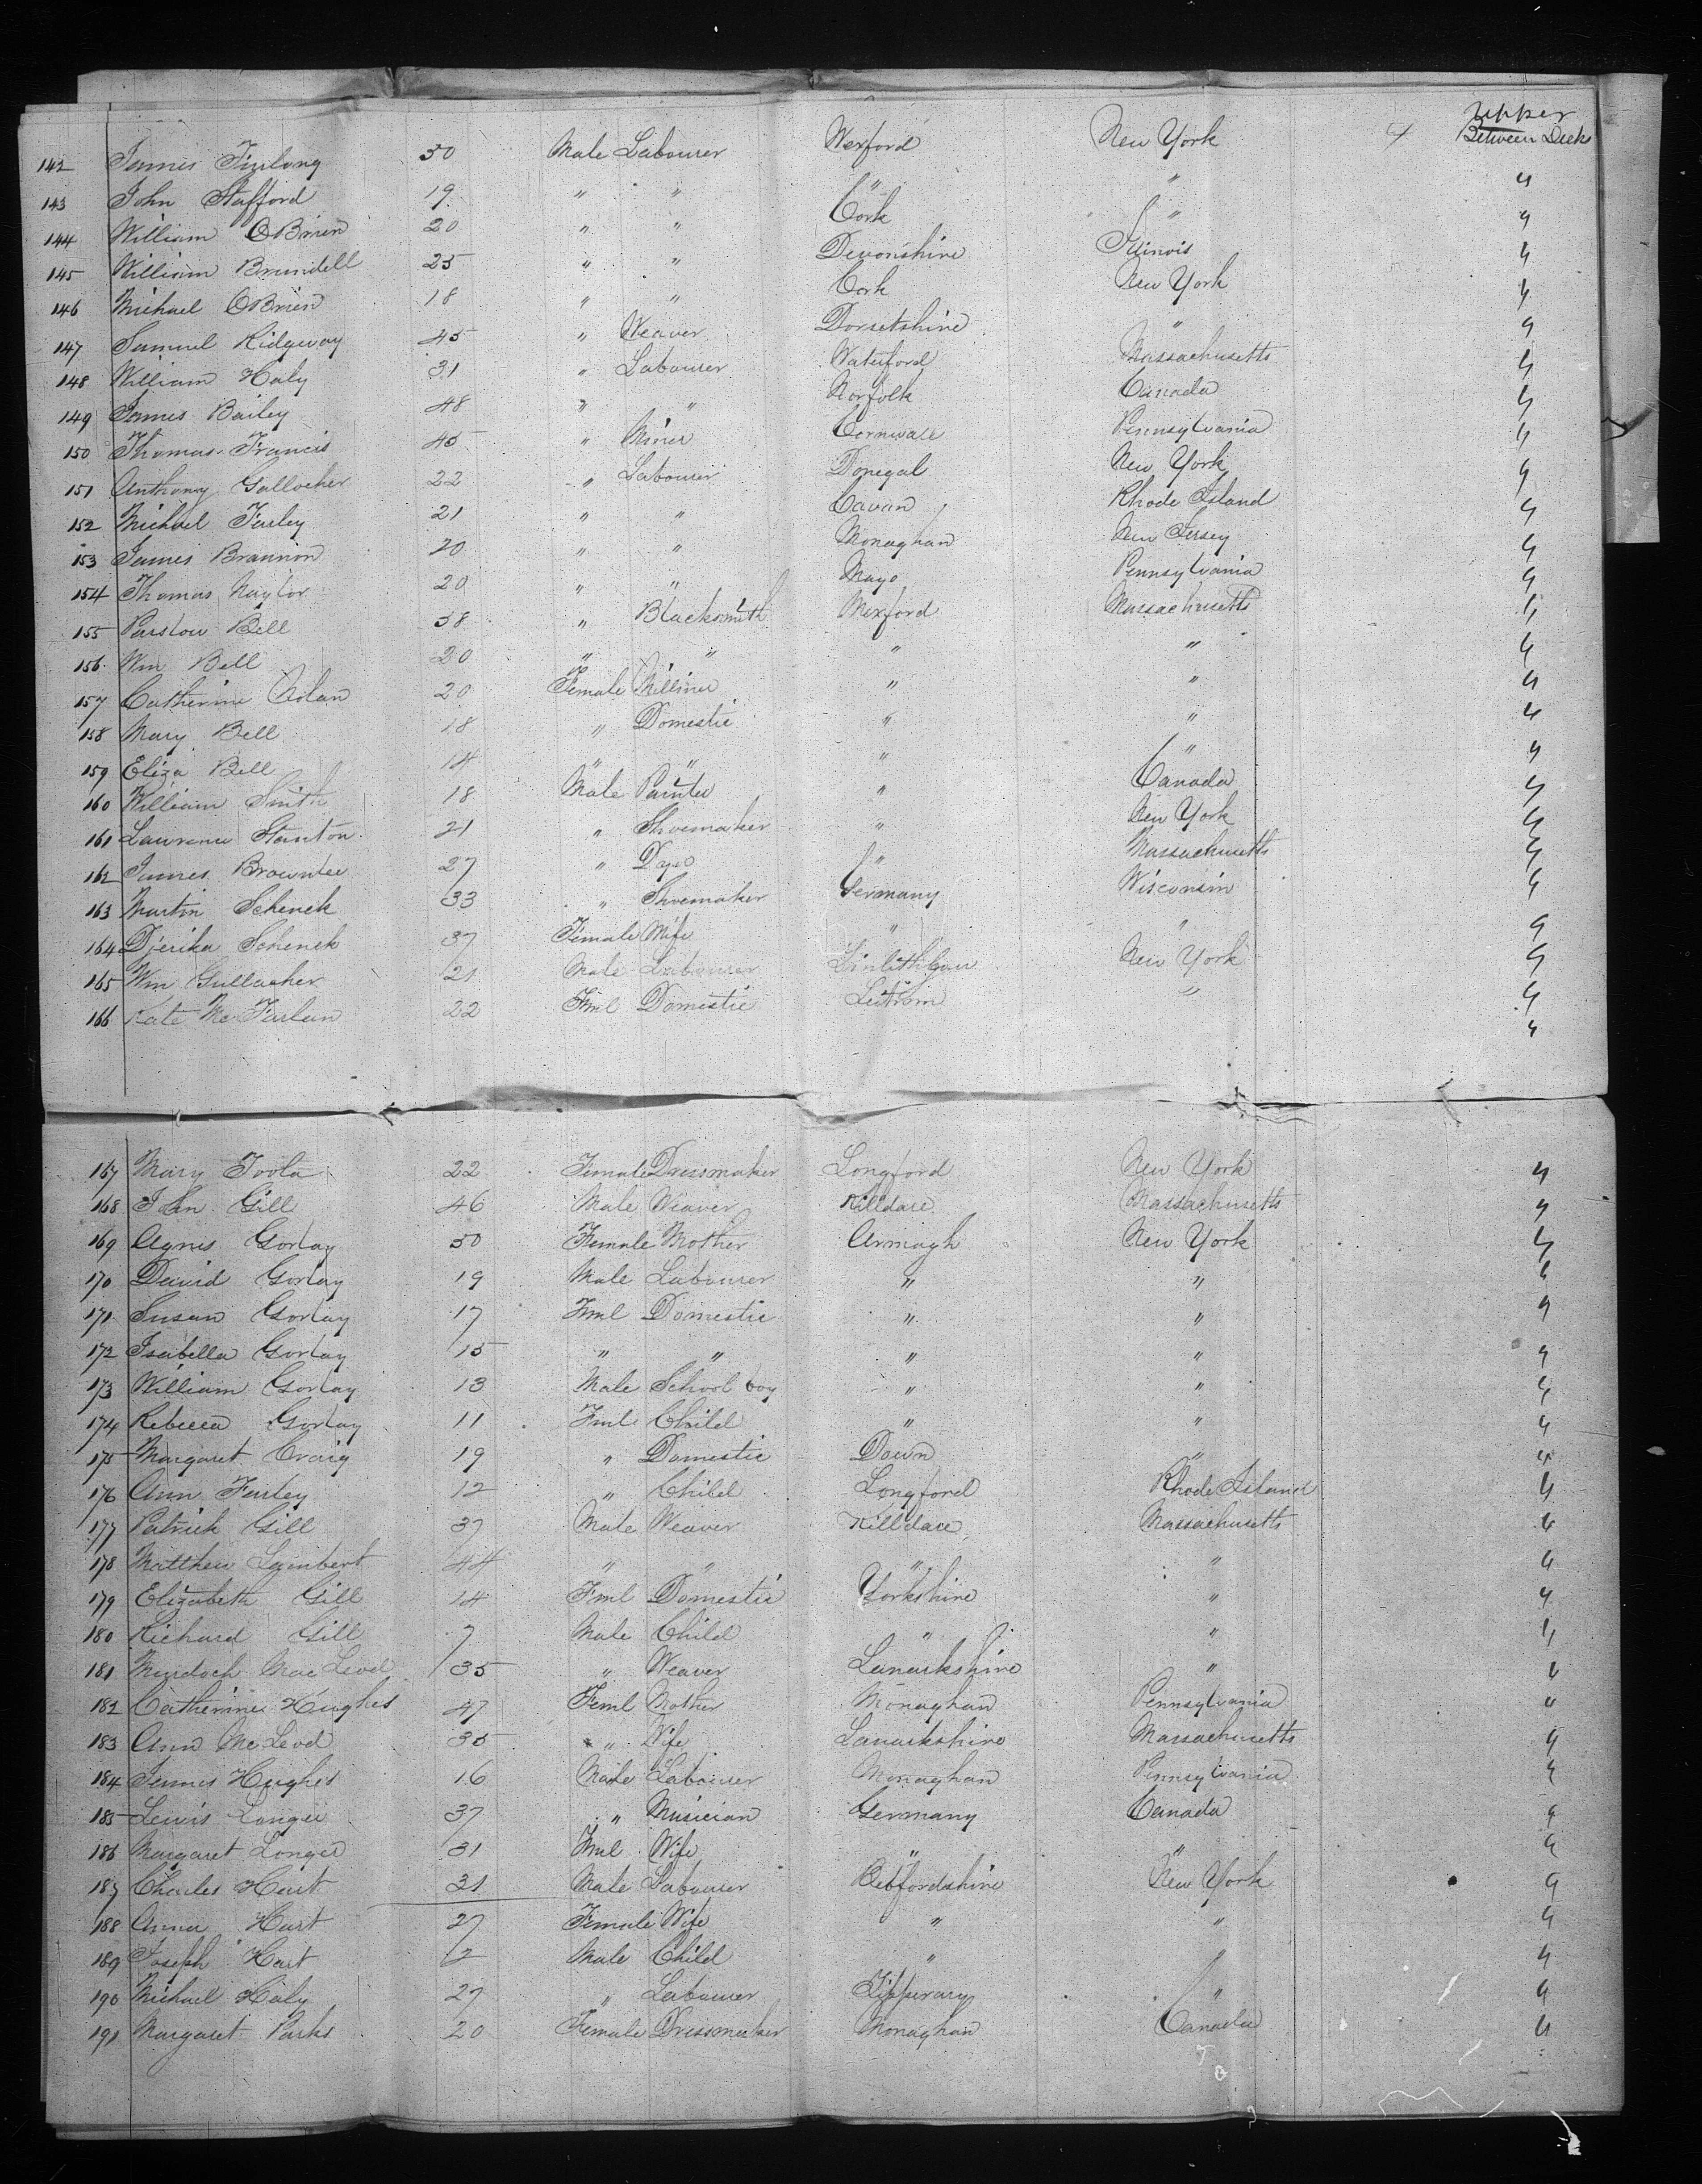 Upper
142 James Fizlong 50 Male Labourer Wexford New York 4 Between Decks
143 John Stafford 19 " " " " "
144 William OBrien 20 " " Cork " "
145 William Brundell 25 " " Devonshire Illinois "
146 Michael OBrien 18 " " Cork New York "
147 Samuel Ridgway 45 " Weaver Dorsetshire " "
148 William Haly 31 " Labourer Waterford Massachusetts "
149 James Bailey 48 " " Norfolk Canada "
150 Thomas Francis 45 " Miner Cornwall Pennsylvania "
151 Anthony Gallocher 22 " Labourer Donegal New York "
152 Michael Farley 21 " " Cavan Rhode Island "
153 James Brannon 20 " " Monaghan New Jersey "
154 Thomas Naylor 20 " " Mayo Pennsylvania "
155 Parslow Bell 58 " Blacksmith Wexford Massachusetts "
156 Wm Bell 20 " " " " "
157 Catherine Nolan 20 Female Milliner " " "
158 Mary Bell 18 " Domestic " " "
159 Eliza Bell 14 " " " " "
160 William Smith 18 Male Painter " Canada "
161 Lawrence Stanton 21 " Shoemaker " New York "
162 James Brownlee 27 " " Massachusetts "
163 Martin Schenck 33 " Shoemaker Germany Wisconsin "
164 Djerika Schenck 37 Female Wife " " "
165 Wm Gullacher 21 Male Labourer Linlithgow New York "
166 Kate McFarlan 22 Fml Domestic Leitrim " "
167 Mary Toola 22 Female Dressmaker Longford New York "
168 John Gill 46 Male Weaver Killdare Massachusetts "
169 Agnes Gorlay 50 Female Mother Armagh New York "
170 David Gorlay 19 Male Labourer " " "
171 Susan Gorlay 17 Fml Domestic " " "
172 Isabella Gorlay 15 " " " " "
173 William Gorlay 13 Male School boy " " "
174 Rebecca Gorlay 11 Fml Child " " "
175 Margaret Craig 19 " Domestic Down " "
176 Ann Farley 12 " Child Longford Rhode Island "
177 Patrick Gill 37 Male Weaver Killdare Massachusetts "
178 Matthew Lambert 44 " " " " "
179 Elizabeth Gill 14 Fml Domestic Yorkshire " "
180 Richard Gill 7 Male Child " " "
181 Murdoch Mac Leod 35 " Weaver Lanarkshire " "
182 Catherine Hughes 47 Feml Mother Monaghan Pennsylvania "
183 Ann McLeod 35 " Wife Lanarkshire Massachusetts "
184 James Hughes 16 Male Labourer Monaghan Pennsylvania "
185 Lewis Langer 37 " Musician Germany Canada "
186 Margaret Longer 31 Fml Wife " " "
187 Charles Hart 31 Male Labourer New York "
188 Anna Hart 27 Female Wife " " "
189 Joseph Hart 2 Male Child " " "
190 Michael Haly 27 " Labourer Tipperary " "
191 Margaret Parks 20 Female Dressmaker Monaghan Canada "